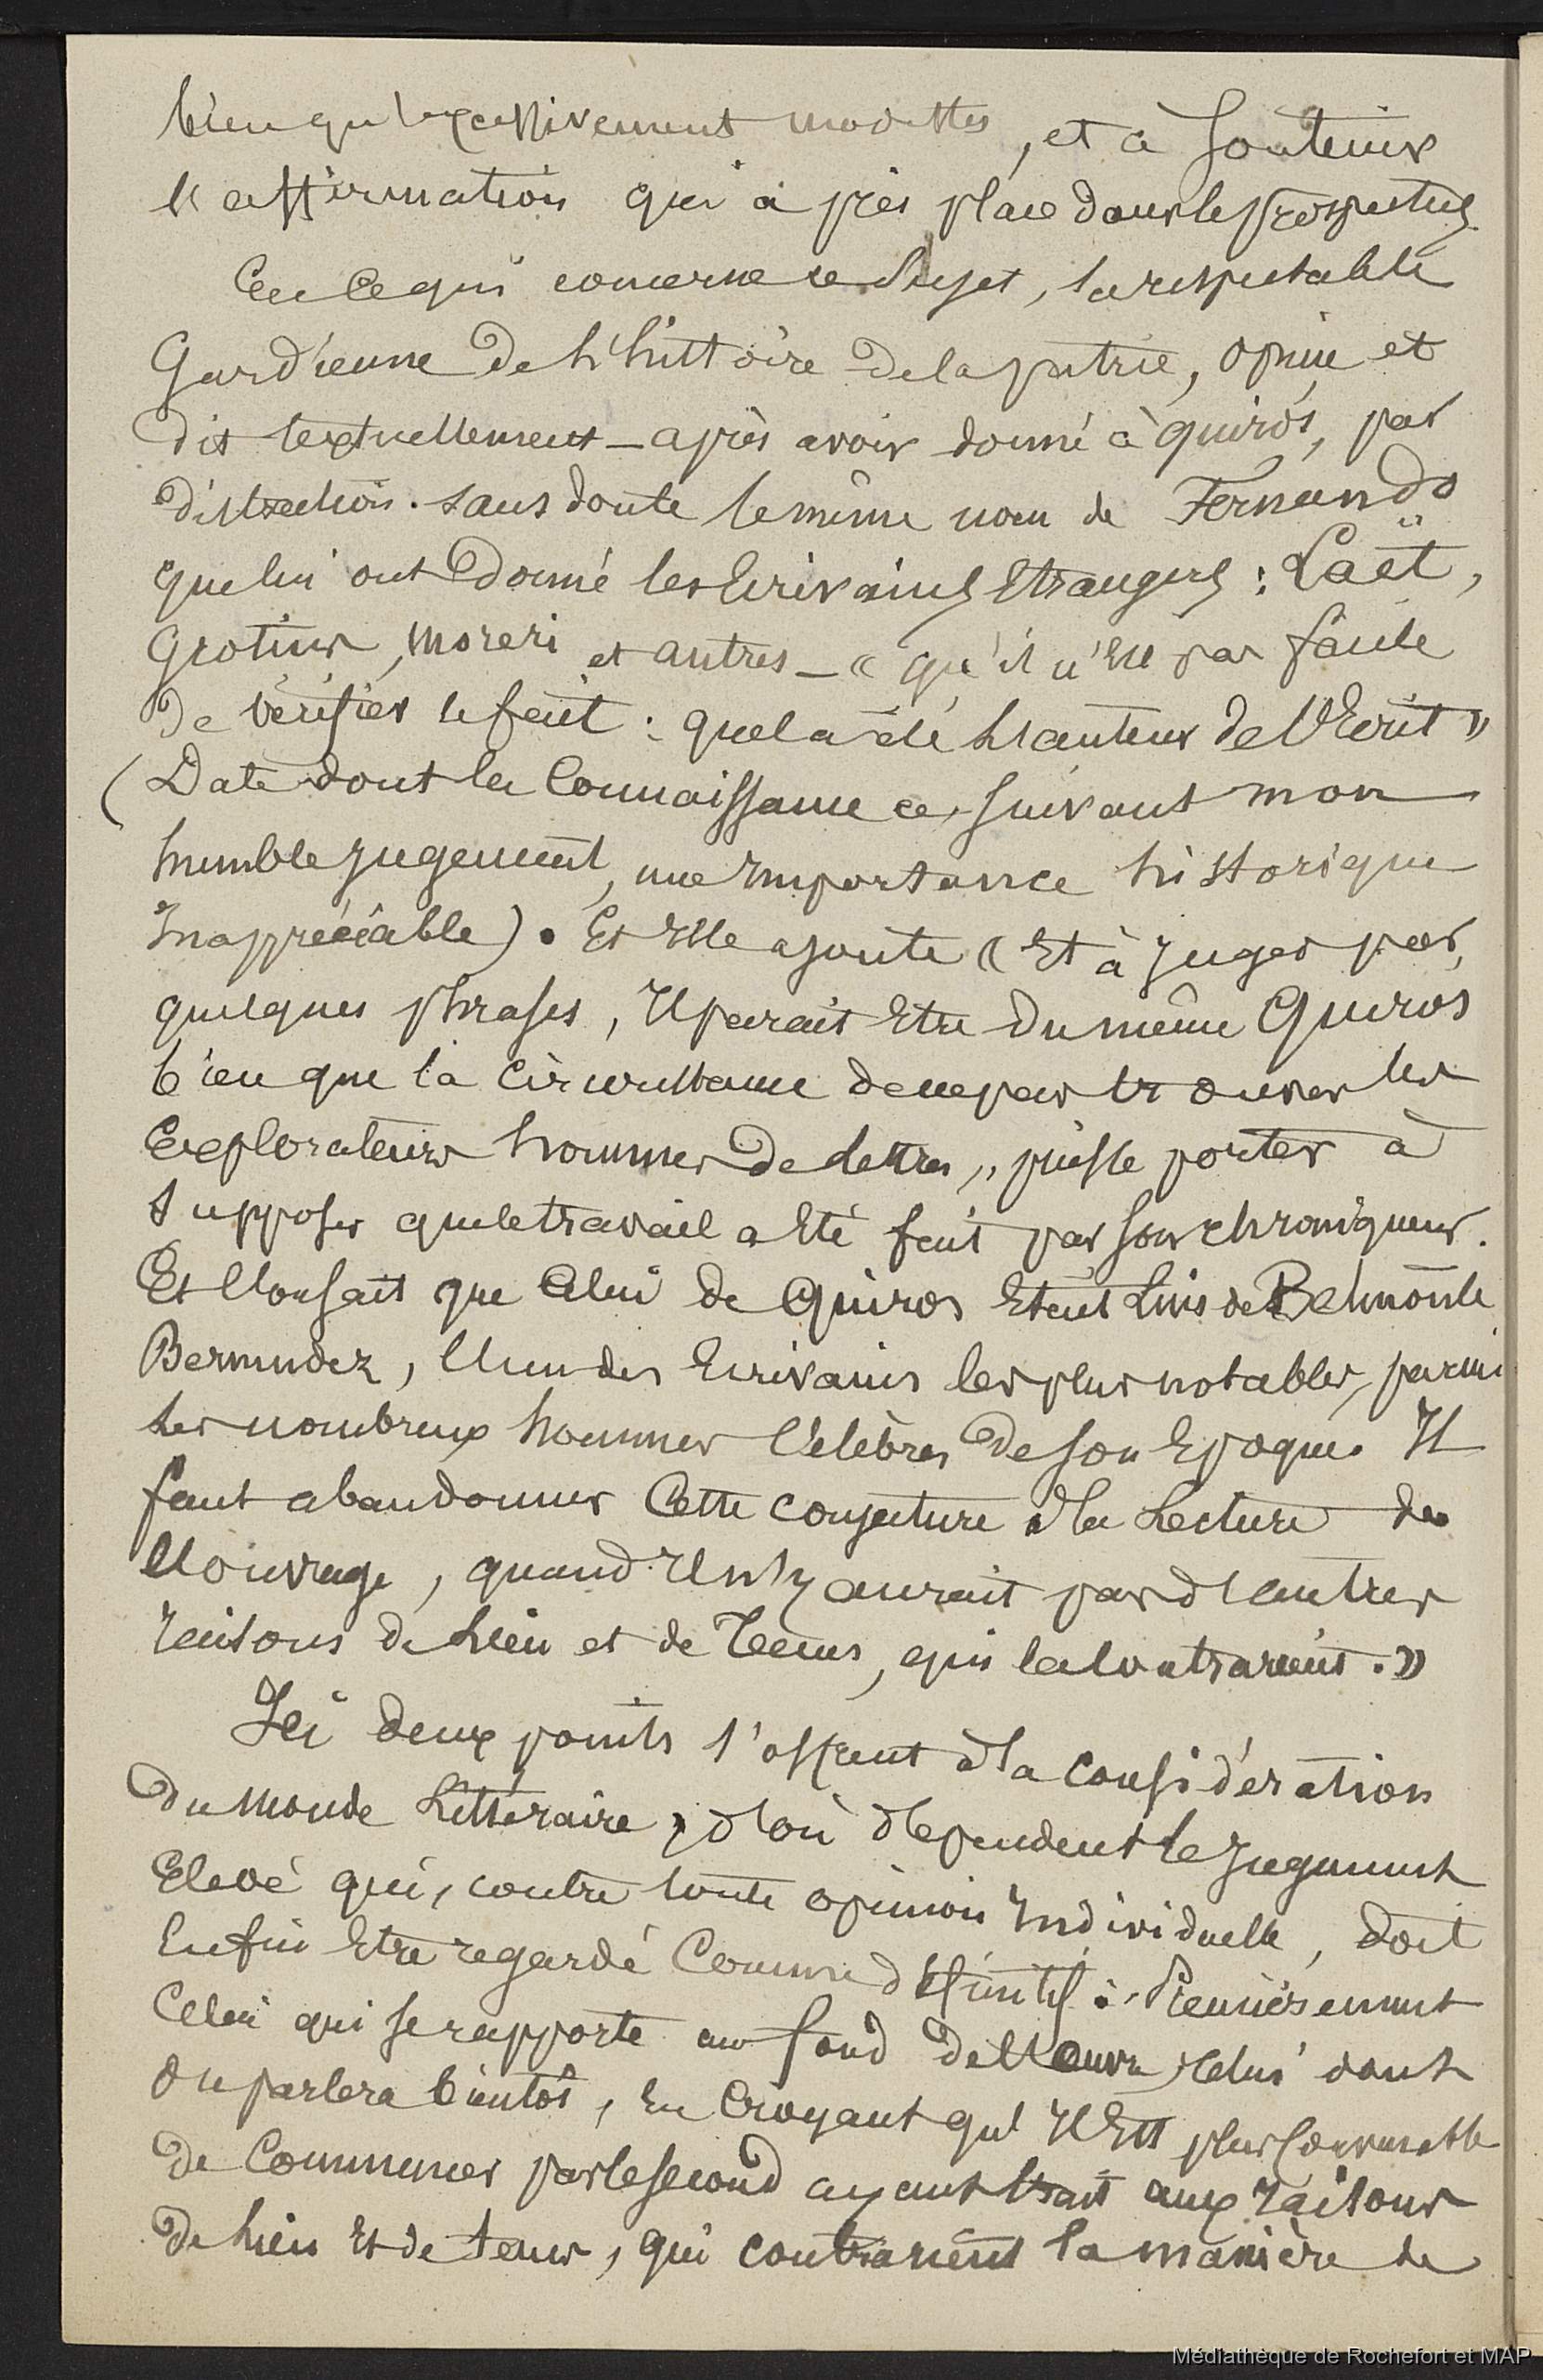 bien qu'excessivement modestes, et à soutenir
l'affirmation qui a pris place dans le prospectus.
En ce qui concerne ce sujet, la respectable
Gardienne de l'histoire de la patrie, opine et
dit textuellement – après avoir donné à Quiros, par
distraction sans doute le même nom de Fernando
que lui ont donné les Ecrivains Etrangers : Laët,
Grotius, Moreri et autres – « qu'il n'est pas facile
de vérifier le fait : quel a été l'auteur de l'Ecrit »
(Date dont la Connaissance a, suivant mon
humble jugement, une Importance historique
Inappréciable). Et Elle ajoute « Et à juger par
quelques phrases, Il parait Etre du même Quiros
bien que la circonstance de ne pas trouver les
Explorateurs hommes de lettres, puisse porter à
supposer que le travail a Eté fait par son chroniqueur.
Et l'on sait que Celui de Quiros Etait Luis de Belmonte
Bermudez, l'un des Ecrivains les plus notables, parmi
les nombreux hommes Célèbres de son Epoque. Il
faut abandonner Cette conjecture à la Lecture de
l'ouvrage, quand Il n'y aurait pas d'autres
raisons de Lieu et de Tems, qui la contrarient. »
Ici deux points s'offrent à la considération
du Monde Littéraire, d'où dépendent le jugement
Elevé qui, contre toute opinion Individuelle, doit
Enfin Etre regardé Comme définitif : Premièrement
Celui qui se rapporte au fond de l'œuvre, celui dont
On parlera bientôt, En Croyant qu'Il Est plus convenable
de Commencer par le second ayant trait aux raisons
de Lieu Et de tems, qui contrarient la manière de
Médiathèque de Rochefort et MAP